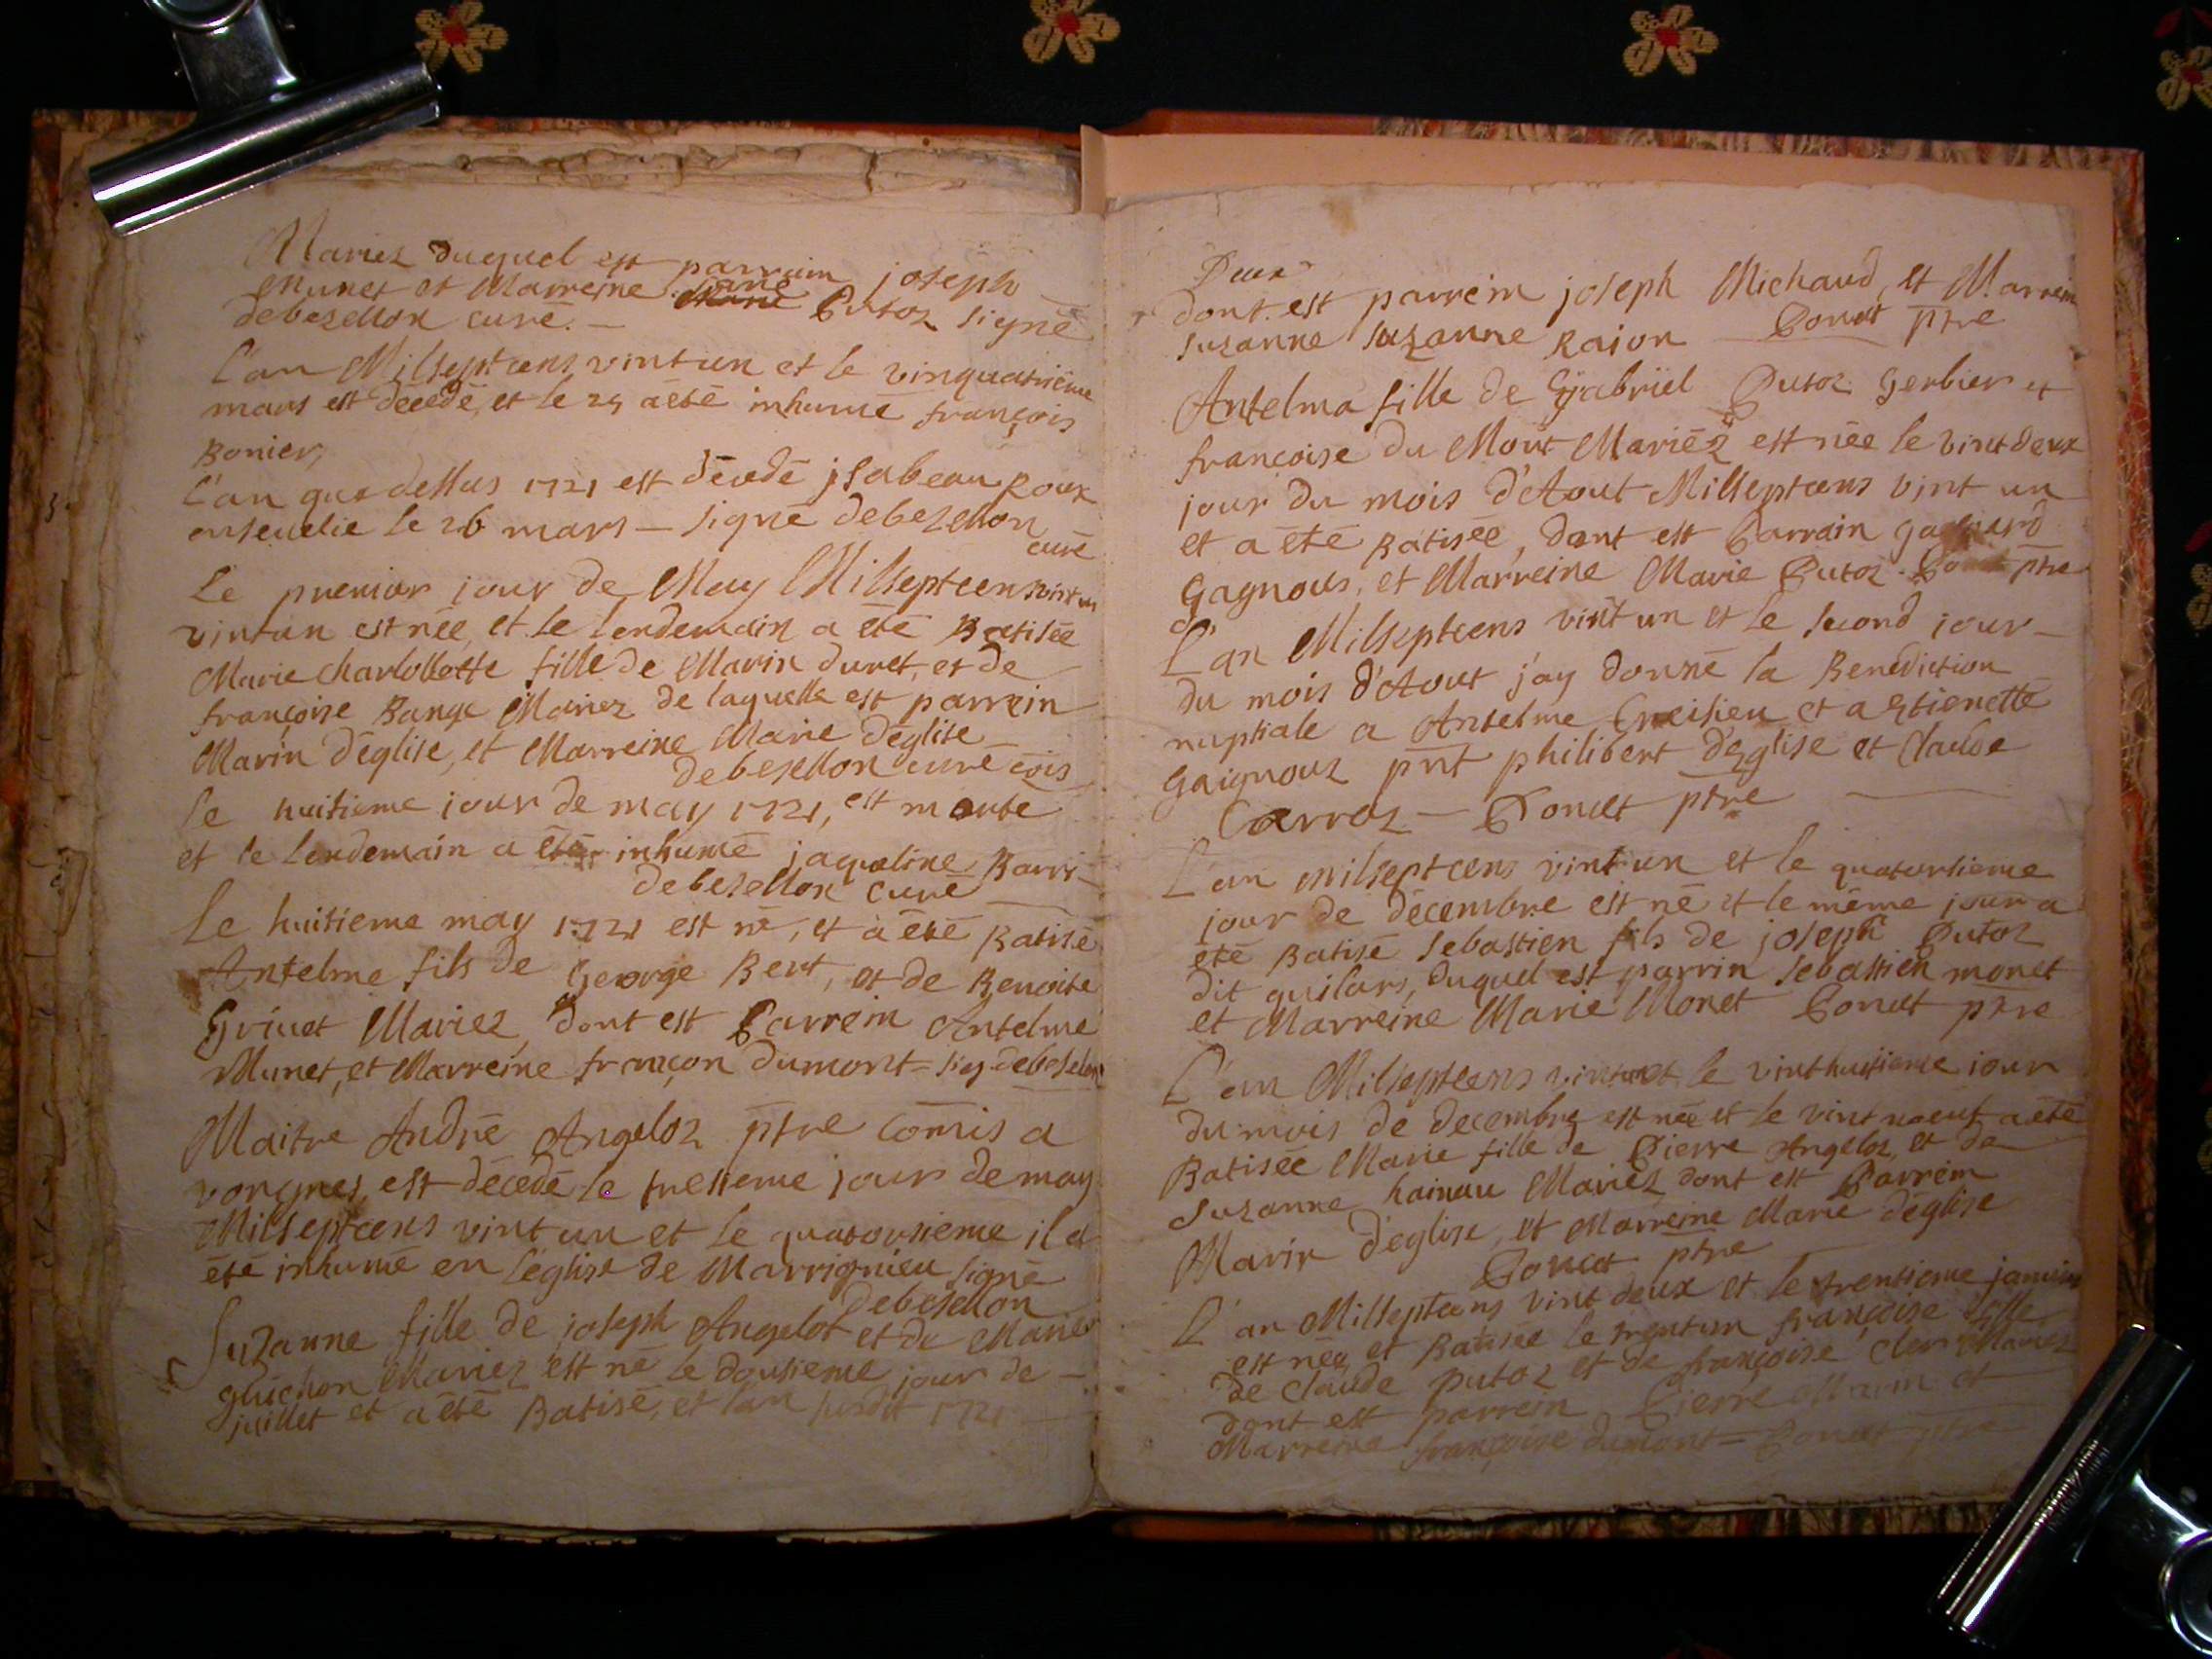 Mariez duquel est parrain joseph
Munet et Marreine jane Putoz signé
debesellon curé. —
L'an Milseptcens vint un et le vinquatrieme
mars est décédé, et le 25 a été inhumé françois
Bonier,
L'an que dessus 1721 est décédé jsabeau Roux
ensevelie le 26 mars — signé debesellon
curé
Le premier jour de May Milseptcens vint un
vint un est née, et le lendemain a été Batisée
Marie Charlottotte fille de Marin duret, et de
françoise Bange Mariez de laquelle est parrein
Marin d'église, et Marreine Marie d'église
debesellon curé
Le huitieme jour de may 1721, est morte
et le lendemain a été inhumé jaqueline Barri-
debesellon curé
Le huitieme may 1721 est né, et a été Batisé
Antelme fils de George Bert, et de Benoite
Grinet Mariez, dont est Parrein Antelme
Munet, et Marreine françon dumont = sig debeselon
Maitre André Angeloz ptre comis a
vongnes, est décédé le tresieme jour de may
Milseptcens vint un et le quatorsieme il a
été inhumé en l'église de Marrignieu signé
debesellon
Suzanne fille de joseph Angelot et de Marie
guichon Mariez est né le dousieme jour de —
juillet et a été Batisé, et l'an susdit 1721 —
Deux
dont est parrein joseph Michaud, et Marrein
suzanne suzanne Rajon — Poncet ptre
Antelma fille de Gabriel Putoz Gerbier et
françoise du Mont Mariéz est née le vint deux
jour du mois d'Aout Milseptcens vint un
et a été Batisée, dont est Parrain
Gagnous, et Marreine Marie Putoz. Poncet ptre
L'an Milseptcens vint un et le second jour —
du mois d'Aout j'ay donné la Benediction
nuptiale a Antelme Creisieu et a Etienette
Gaignouz pnt philibert d'Eglise et Claude
Carroz — Poncet ptre
L'an milseptcens vint un et le quatorsieme
jour de décembre est né et le même jour a
été Batisé sebastien fils de joseph Putoz
dit quilars, duquel est parrin sebastien monet
et Marreine Marie Monet Poncet ptre
L'an Milseptcens vint un et le vinthuitieme jour
du mois de decembre est née et le vint noeuf a été
Batisée Marie fille de Pierre Angeloz, et de
Suzanne hainau Mariez dont est Parrein
Marin d'église, et Marreine Marie d'église
Poncet ptre
L'an Milseptcens vint deux et le trentieme janvier
est née et Batisée le trentun françoise fille
de Claude Putoz et de françoise Cler Mariez
dont est parrein Pierre Marin et
Marreine françoise dumont = Poncet ptre